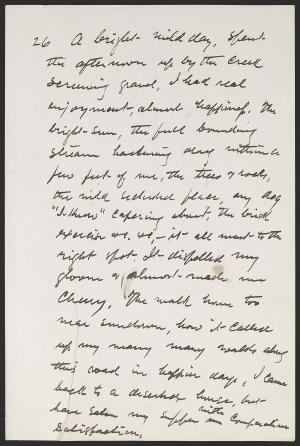 26 A bright mild day, spent
the afternoon up by the creek
screening gravel, I had real
enjoyment, almost happiness. The
bright sun, the full bounding
stream hastening along within a
few feet of me, the trees & rocks,
the wild secluded place, my dog
capering about, the brisk
exercise &c. &c, - it all went to the
right spot. It dispelled my
gloom & almost made me
cheery, The walk home too
near sundown, how it called
up my many many walks along
this road in happier days, I came
back to a deserted house, but
have eaten my supper with comparative
satisfaction.